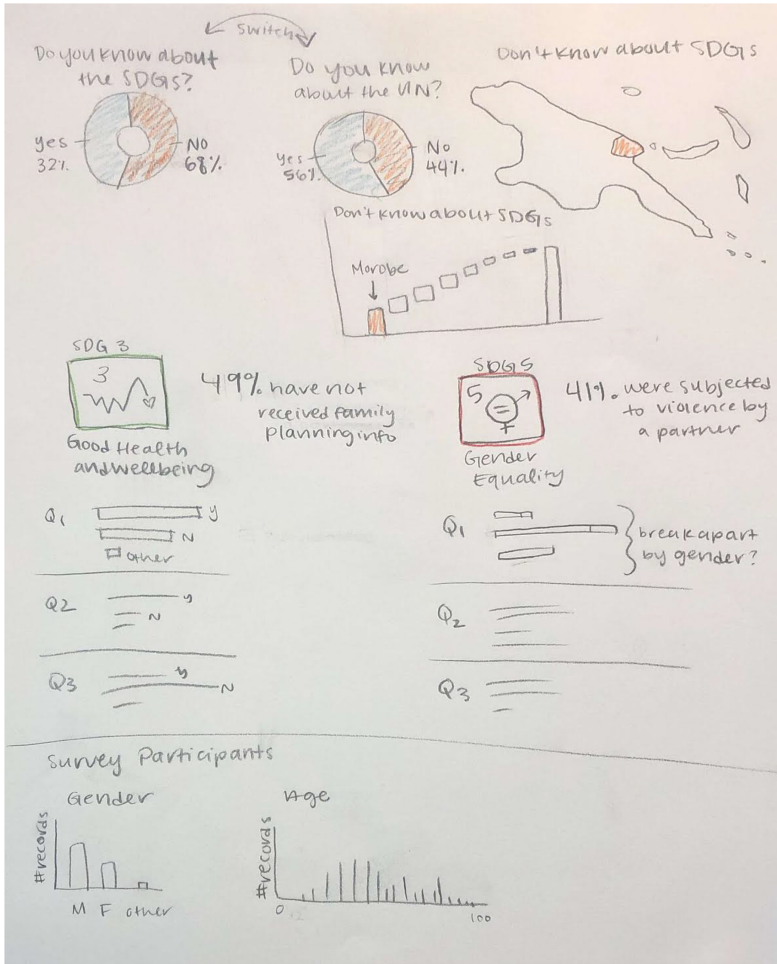 switch
Do you know about
the SDGs?
yes
32%
No
68%
Do you know
about the UN?
yes
56%
No
44%
Don't know about SDGs
Don't know about SDGs
Morobe
SDG 3
3
49% have not
received family
planning info
Good Health
and wellbeing
SDG 5
5
41% were subjected
to violence by
a partner
Gender
Equality
Q1
y
N
other
Q2
y
N
Q3
y
N
Q1
break apart
by gender?
Q2
Q3
Survey Participants
Gender
# records
M F other
Age
# records
0
100